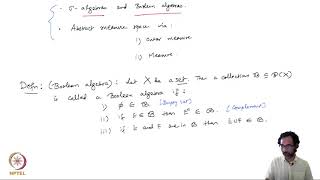 σ- algebras and Boolean algebras.
Abstract measure space via:
i) Outer measure
ii) Measure.
Defn: (Boolean algebra): Let X be a set. Then a collection B ⊆ P(X)
is called a Boolean algebra if:
i) ∅ ∈ B. [Empty set]
ii) if E ∈ B then Eᶜ ∈ B. [Complement]
iii) if E and F are in B then E∪F ∈ B.
NPTEL